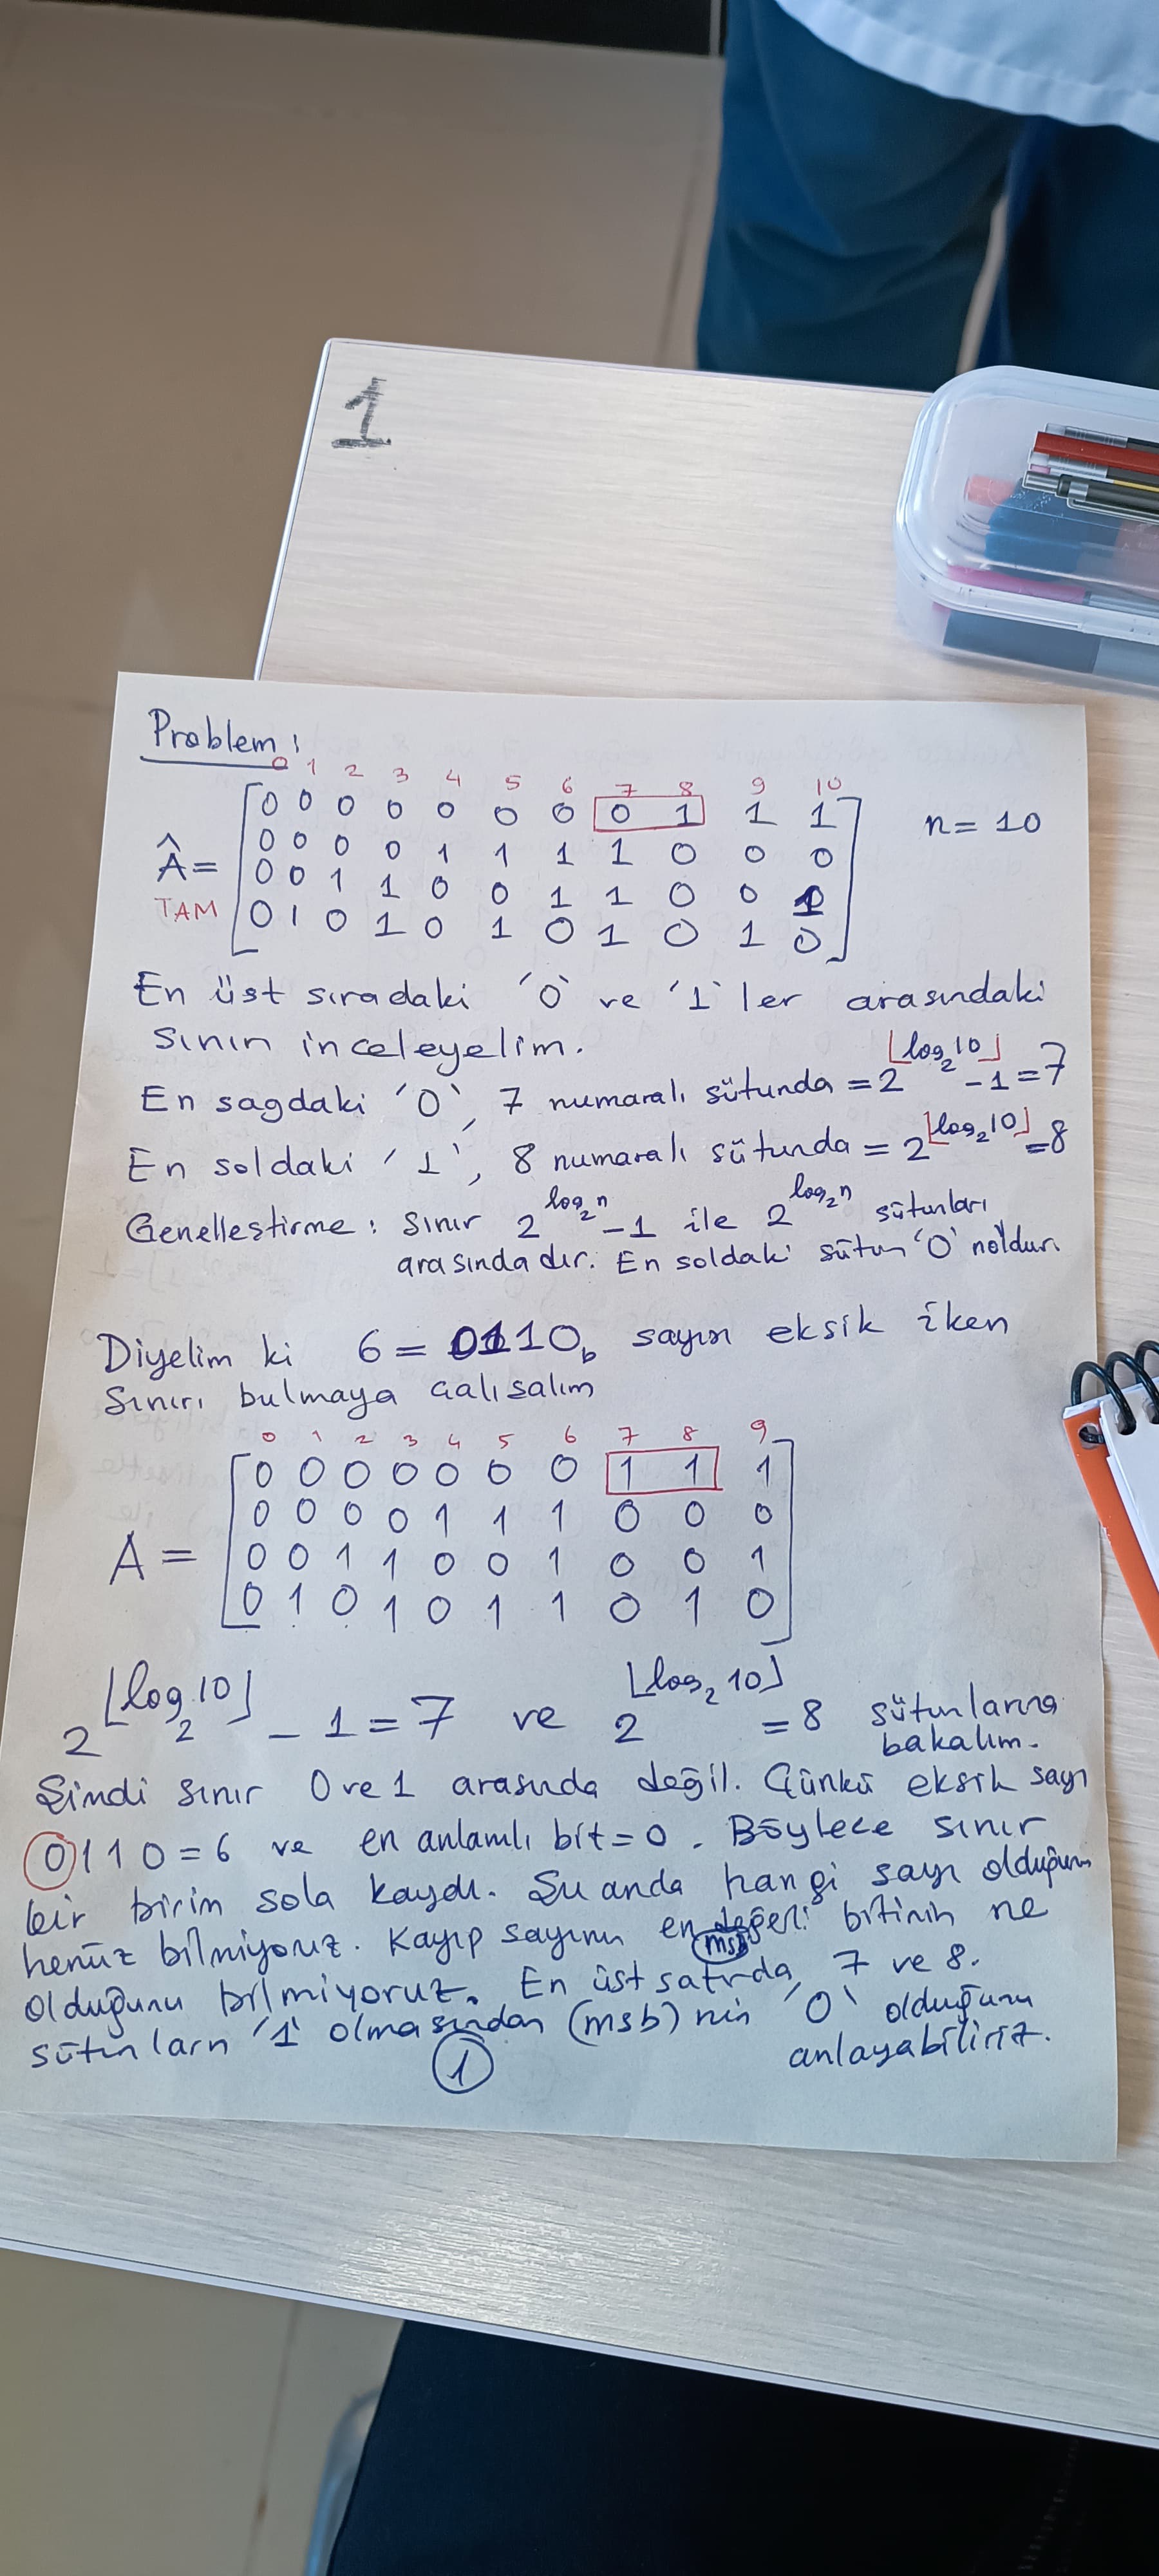 1
Problem:
0 1 2 3 4 5 6 7 8 9 10
0 0 0 0 0 0 0 0 1 1 1 n = 10
0 0 0 0 1 1 1 1 0 0 0
Â =
0 0 1 1 0 0 1 1 0 0 1
TAM
0 1 0 1 0 1 0 1 0 1 0
En üst sıradaki '0' ve '1' ler arasındaki
sınırı inceleyelim.
En sagdaki '0', 7 numaralı sütunda = 2^⌊log₂10⌋ - 1 = 7
En soldaki '1', 8 numaralı sütunda = 2^⌊log₂10⌋ = 8
Genelleştirme: Sınır 2^log₂n - 1 ile 2^log₂n sütunları
arasındadır. En soldaki sütun '0' noldur.
Diyelim ki 6 = 0110b sayısı eksik iken
Sınırı bulmaya çalışalım
0 1 2 3 4 5 6 7 8 9
0 0 0 0 0 0 0 1 1 1
0 0 0 0 1 1 1 0 0 0
A =
0 0 1 1 0 0 1 0 0 1
0 1 0 1 0 1 1 0 1 0
2^⌊log₂10⌋ - 1 = 7 ve 2^⌊log₂10⌋ = 8 sütunlarına
bakalım.
Şimdi sınır 0 ve 1 arasında değil. Çünkü eksik sayı
0110 = 6 ve en anlamlı bit = 0. Böylece sınır
bir birim sola kaydı. Şu anda hangi sayı olduğunu
henüz bilmiyoruz. Kayıp sayının en değerli bitinin ne
msb
olduğunu bilmiyoruz. En üst satırda 7 ve 8.
sütunların '1' olmasından (msb) nin '0' olduğunu
anlayabiliriz.
1